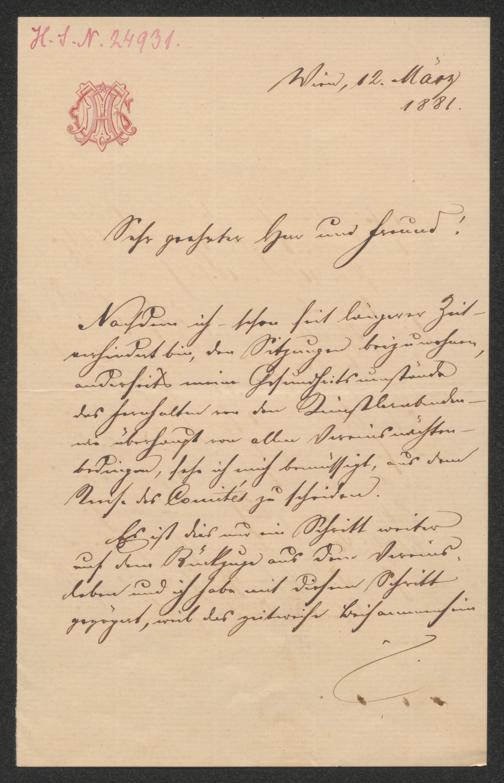 H. I. N. 24931.
Wien, 12. März
1881.
Sehr geehrter Herr und Freund!
Nachdem ich – schon seit längerer Zeit –
verhindert bin, den Sitzungen beizuwohnen,
anderseits meine Gesundheitsumstände
das Fernhalten von den Künstlerabenden –
wie überhaupt von allen Vereinsnächten –
bedingen, sehe ich mich bemüssigt, aus dem
Kreise des Comités zu scheiden.
Es ist dies nur ein Schritt weiter
auf dem Rückzuge aus dem Vereins-
leben und ich habe mit diesem Schritt
gezögert, weil das zeitweise Beisammensein